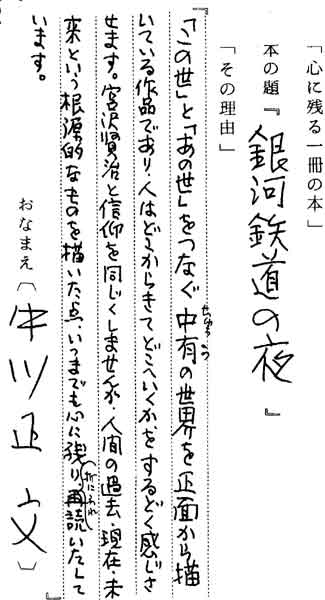 「心に残る一冊の本」
本の題『銀河鉄道の夜』
「その理由」
「この世」と「あの世」をつなぐ中有の世界を正面から描
いている作品であり、人はどこからきてどこへいくかをするどく感じさ
せます。宮沢賢治と信仰を同じくしませんが、人間の過去・現在・未
来という根源的なものを描いた点、いつまでも心に残り、折にふれ再読いたして
います。
おなまえ〔中川正文〕